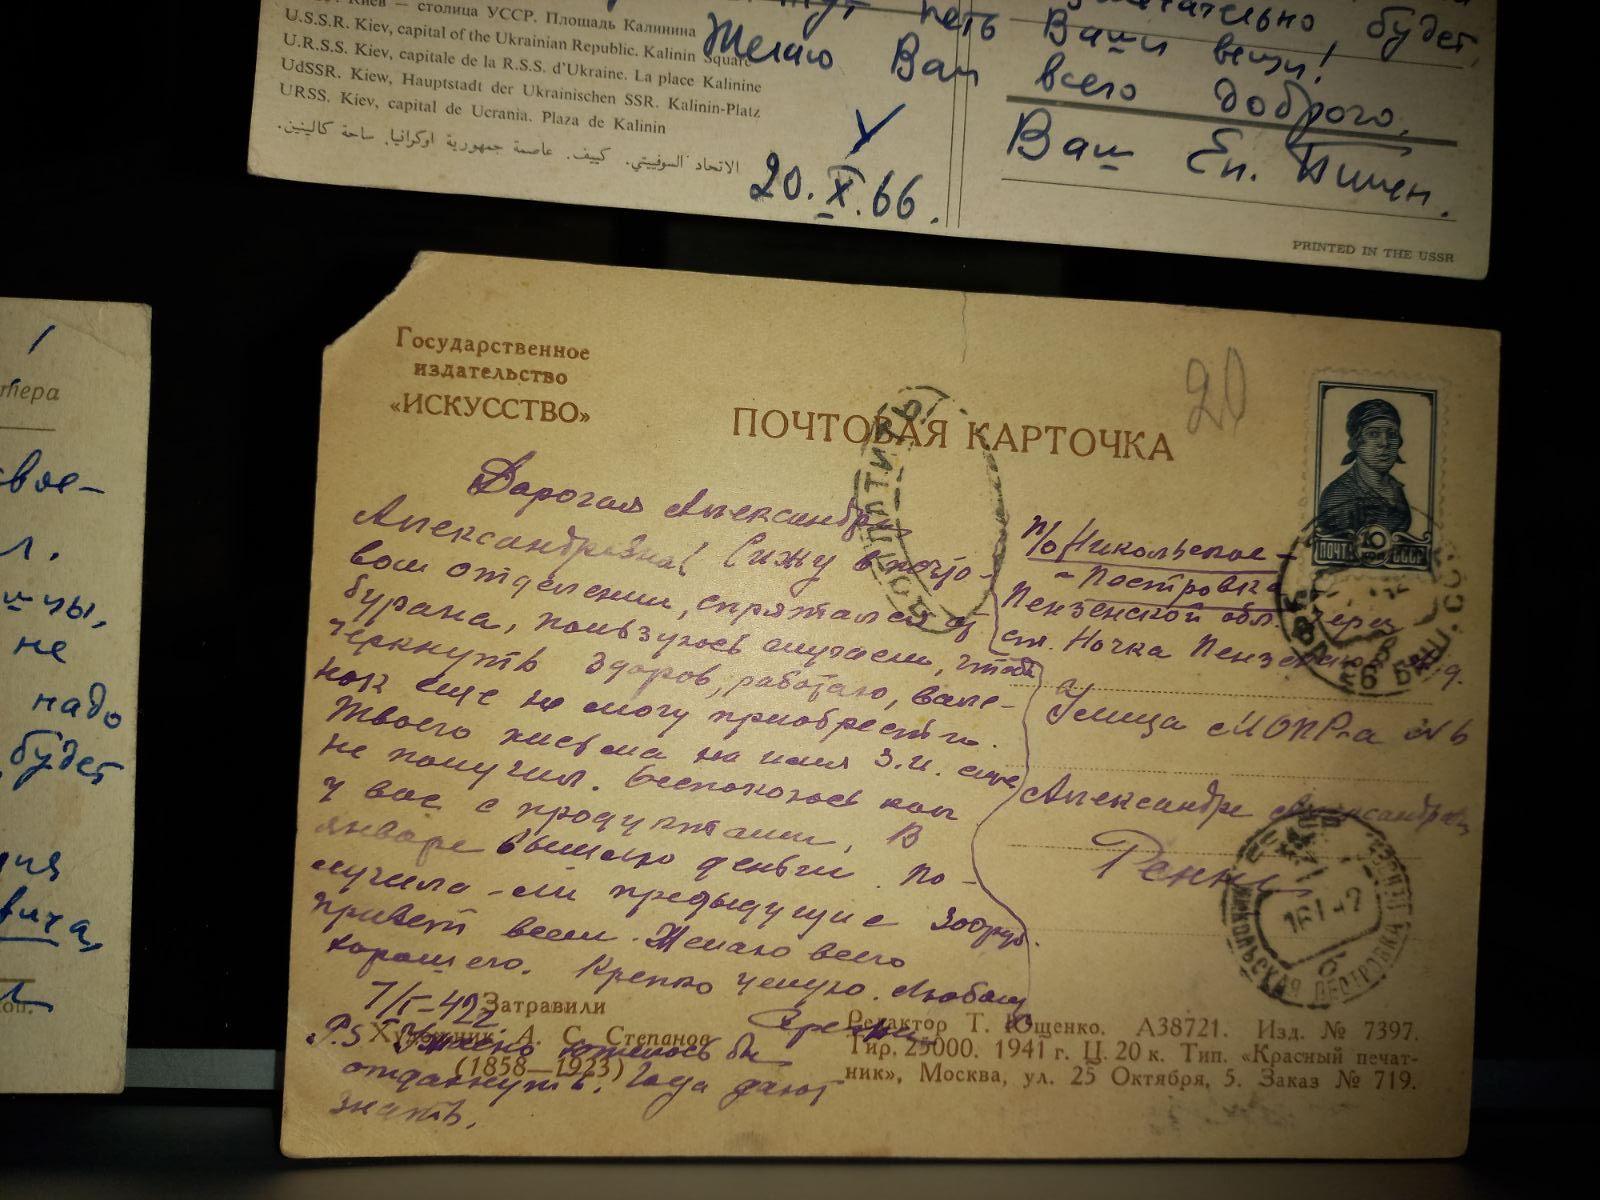 столица УССР. Площадь Калинина
U.S.S.R. Kiev, capital of the Ukrainian Republic. Kalinin Square
U.R.S.S. Kiev, capitale de la R.S.S. d'Ukraine. La place Kalinine
UdSSR. Kiew, Hauptstadt der Ukrainischen SSR. Kalinin-Platz
URSS. Kiev, capital de Ucrania. Plaza de Kalinin
الاتحاد السوفييتي. كييف. عاصمة جمهورية اوكرانيا. ساحة كالينين.
будет
петь Ваши вещи!
Желаю Вам всего доброго.
Ваш Еп. Пимен.
20.X.66.
PRINTED IN THE USSR
вое-
л.
не
надо
будет
вича,
Государственное
издательство
«ИСКУССТВО»
ПОЧТОВАЯ КАРТОЧКА
20
Дарогая Александра
Александровна! Сижу в почто-
вом отделении, спрятался от
бурана, пользуюсь случаем, чтоб
черкнуть здоров, работаю, вале-
нок еще не могу приобрести.
Твоего письма на имя З.И. еще
не получил. Беспокоюсь как
у вас с продуктами. В
январе вышлю деньги. По-
лучила-ли предыдущие 300 руб.
Привет всем. Желаю всего
хорошего. Крепко целую. Любящ
Сережа
7/I-42
P.S. хотелось бы
отдохнуть. Года дают
знать.
П/о Никольское-
-Пестровка
Пензенской обл. через
ст. Ночка Пензенской ж.д.
Улица МОПРа №6
Александре Александровне
Ренни
ПОЧТА 10 СССР
БАШ. СС
16 1 42
НИКОЛЬСКАЯ ПЕСТРОВКА
Затравили
Художник А. С. Степанов
(1858—1923)
Редактор Т. Ющенко. А38721. Изд. № 7397.
Тир. 25000. 1941 г. Ц. 20 к. Тип. «Красный печат-
ник», Москва, ул. 25 Октября, 5. Заказ № 719.